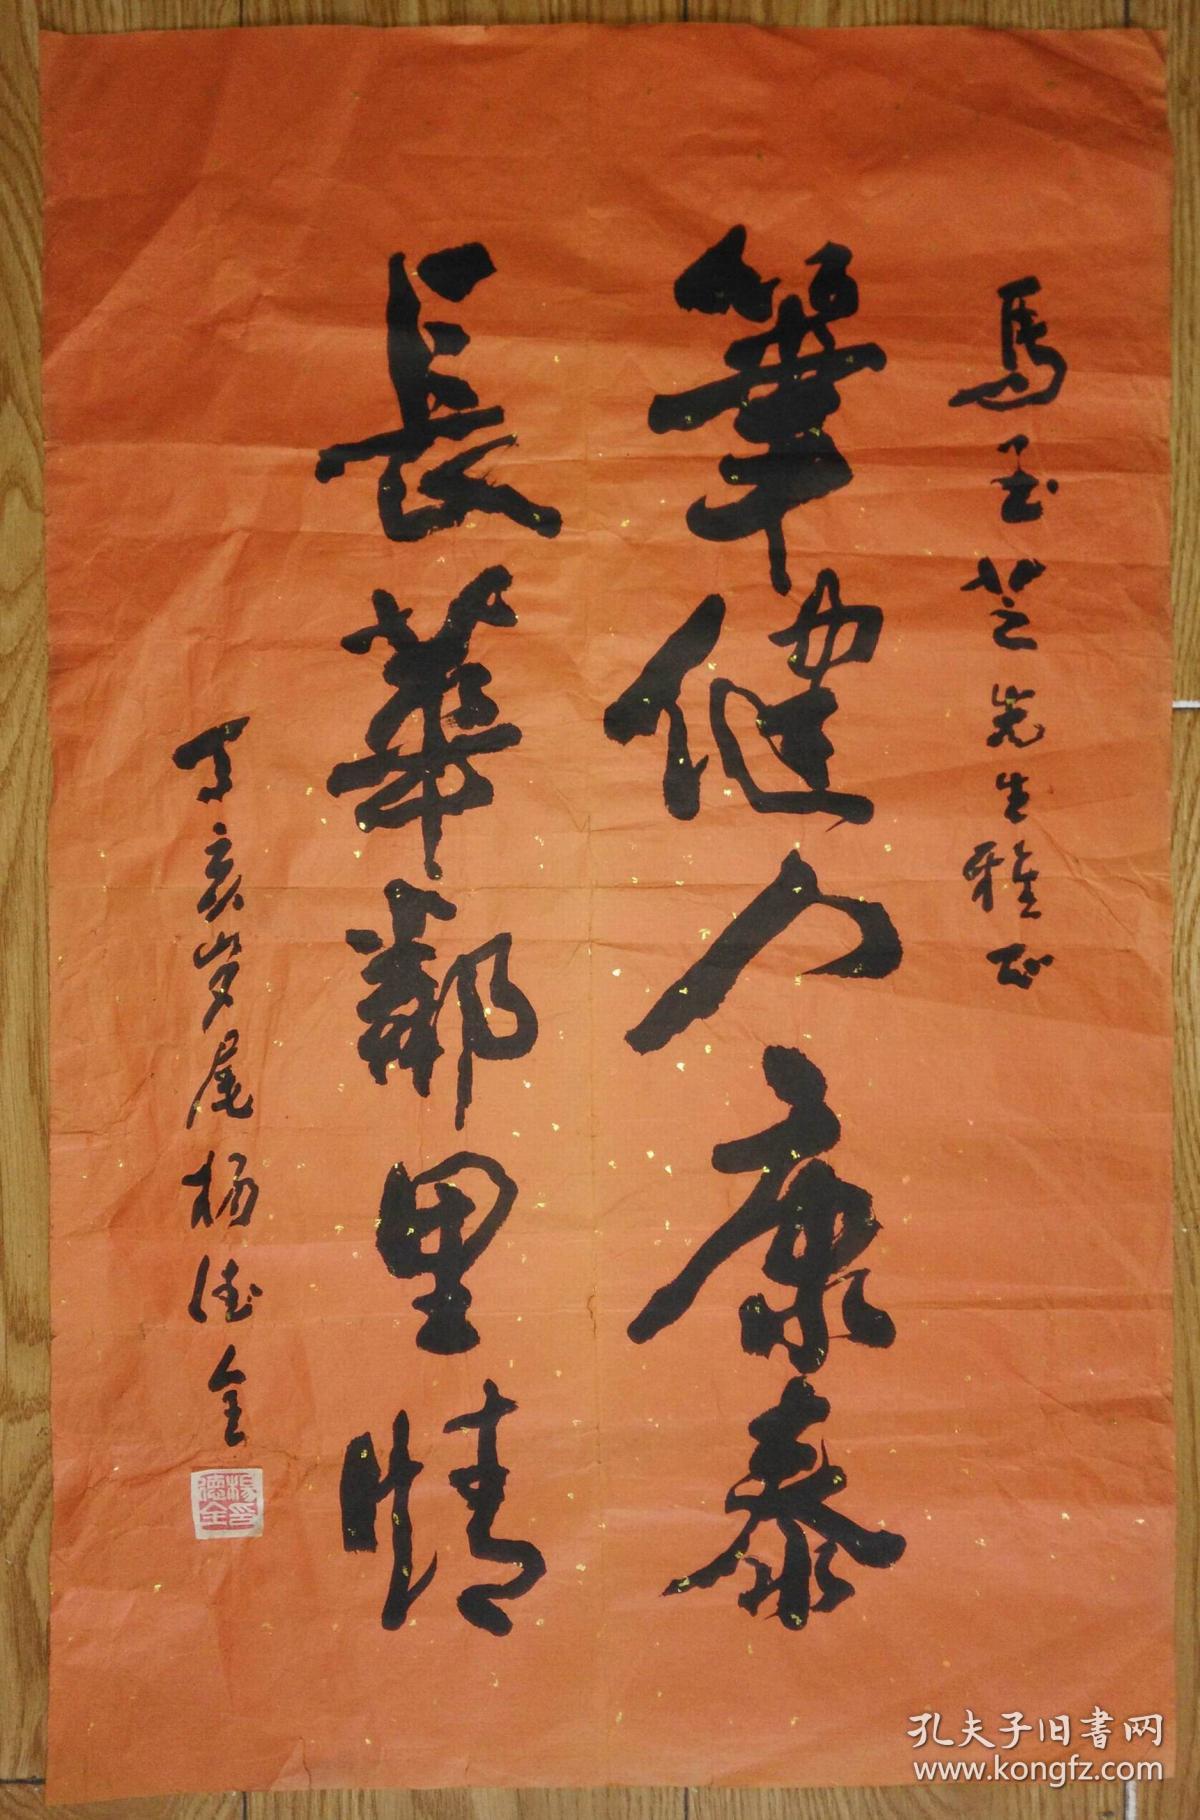 馬玉芝先生雅正
筆健人康泰
長華鄰里情
丁亥岁尾杨德全
楊德全印
孔夫子旧書网
www.kongfz.com